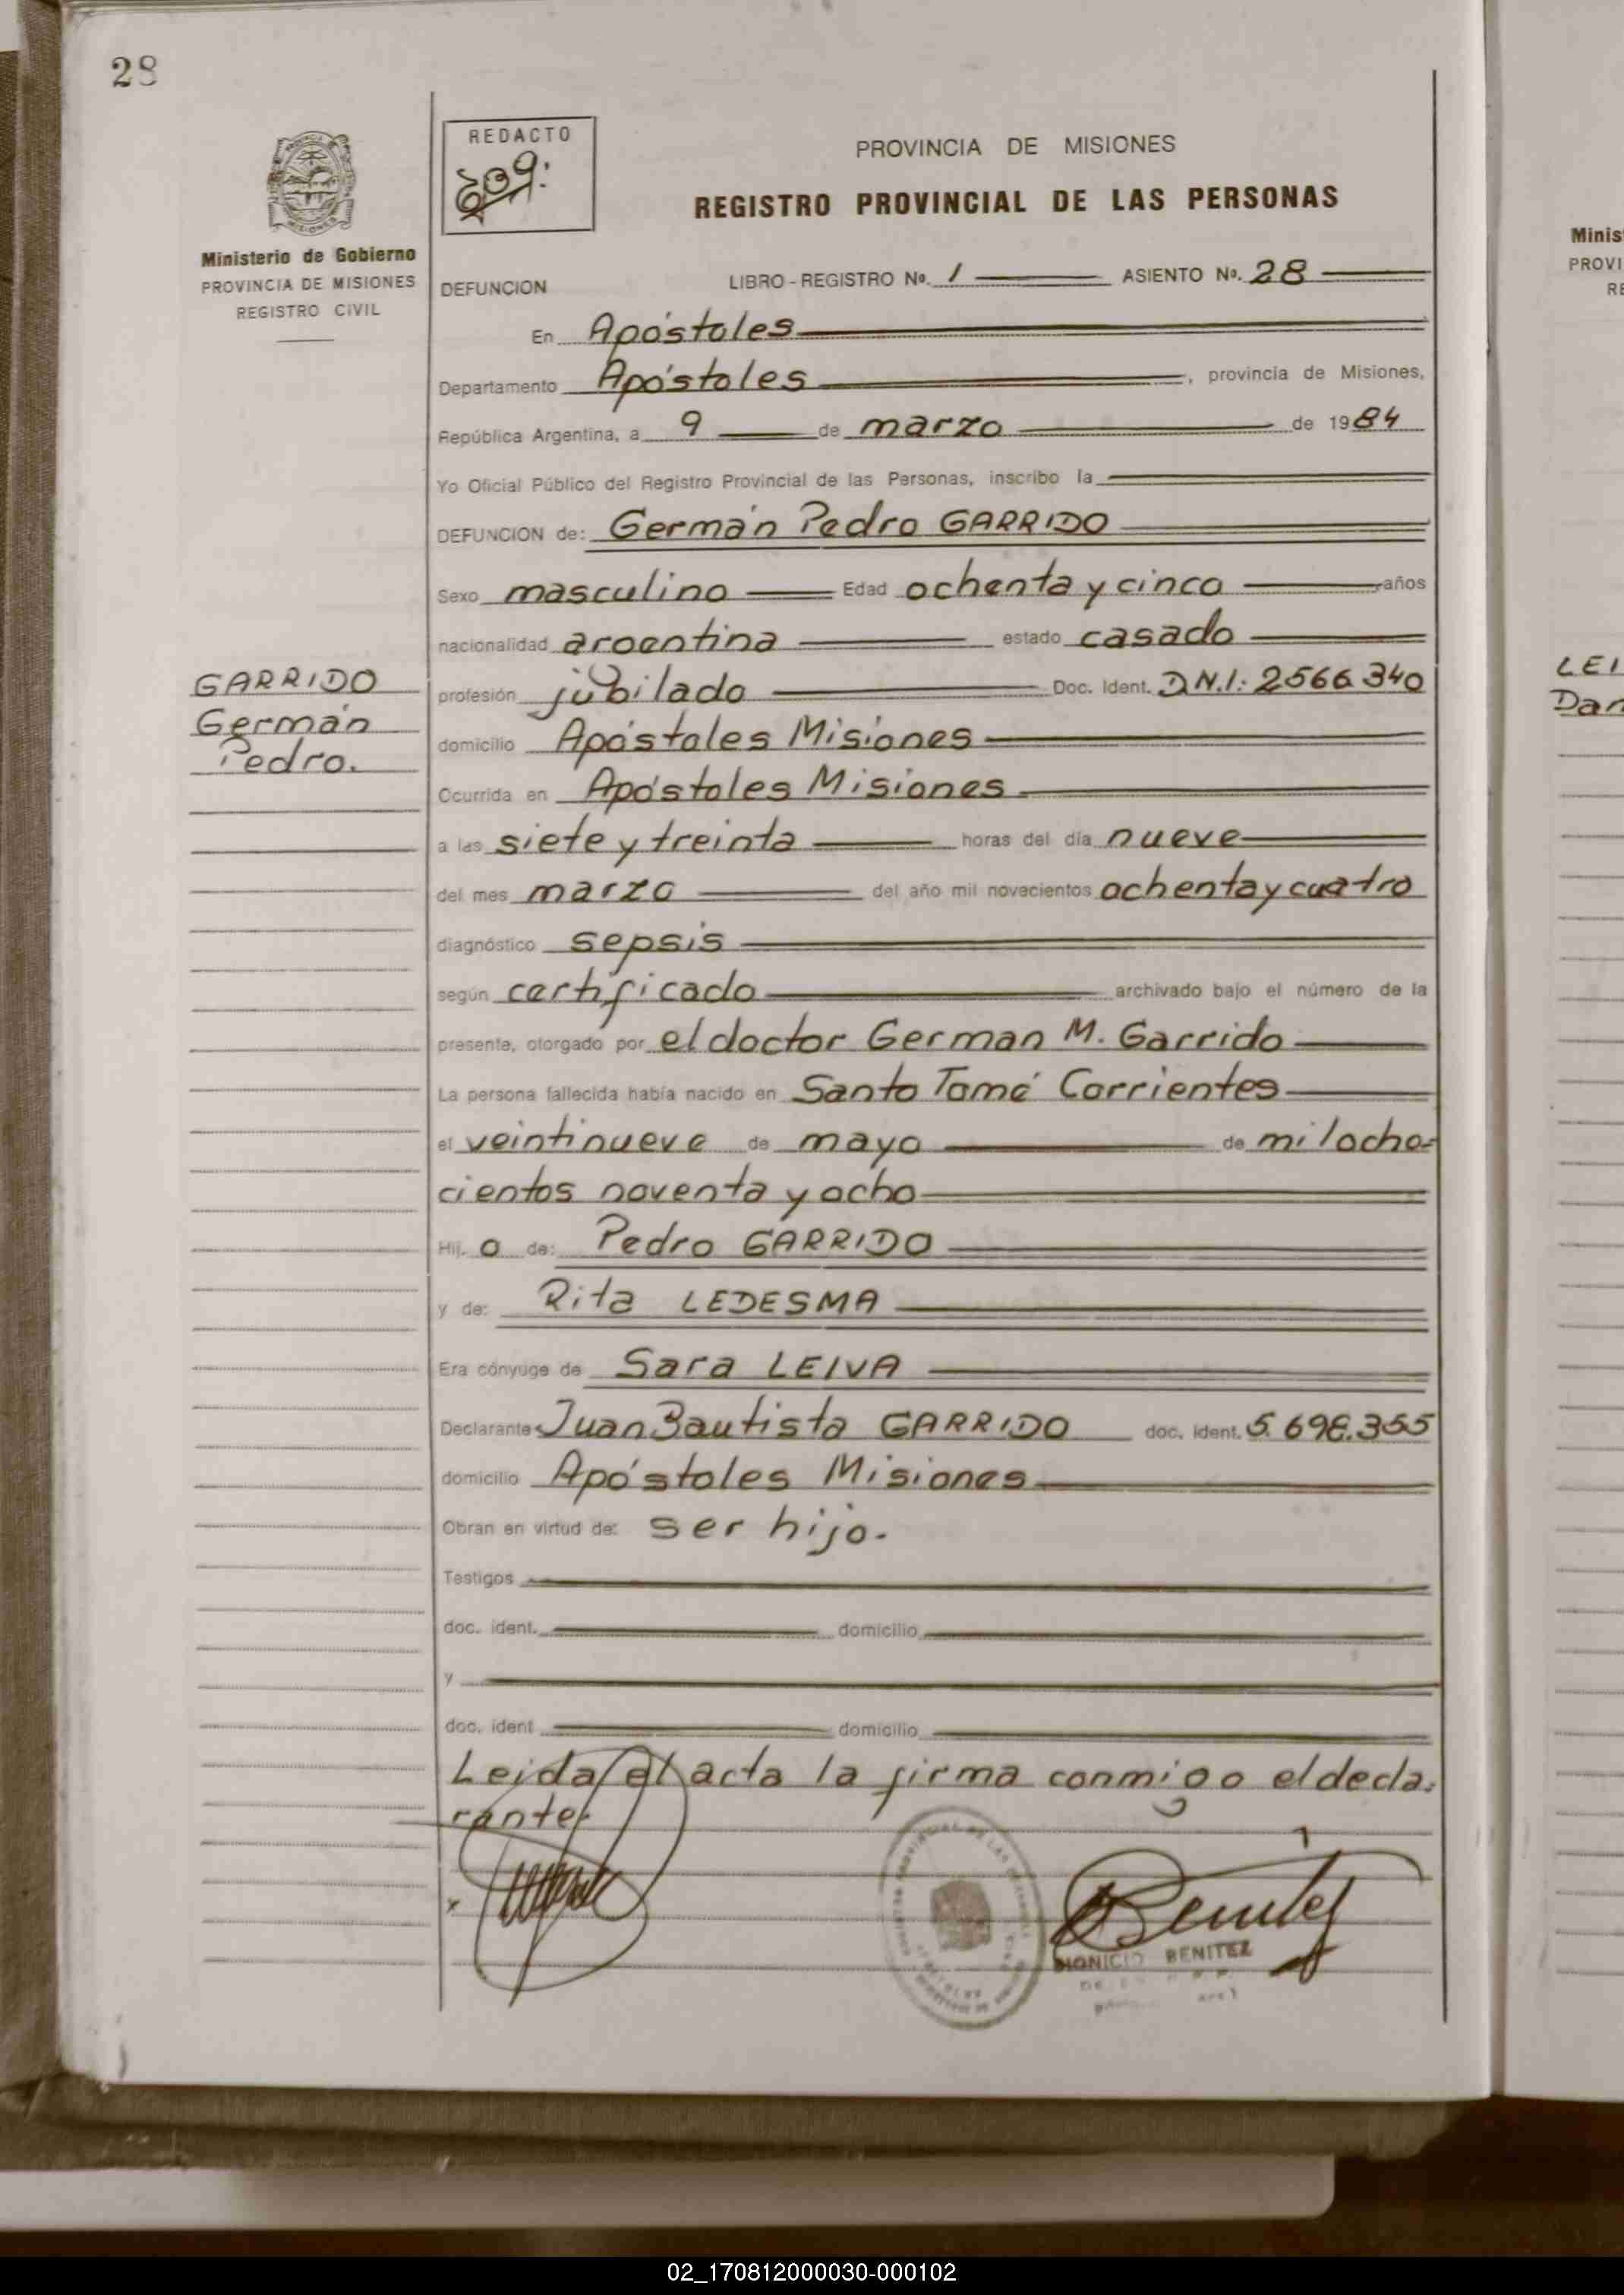 28
REDACTO
PROVINCIA DE MISIONES
REGISTRO PROVINCIAL DE LAS PERSONAS
Ministerio de Gobierno
PROVINCIA DE MISIONES
REGISTRO CIVIL
DEFUNCION LIBRO-REGISTRO Nº. 1 ASIENTO Nº. 28
En Apóstoles
Departamento Apóstoles, provincia de Misiones,
República Argentina, a 9 de marzo de 1984
Yo Oficial Público del Registro Provincial de las Personas, inscribo la
DEFUNCION de: Germán Pedro GARRIDO
Sexo masculino Edad ochenta y cinco años
nacionalidad argentina estado casado
GARRIDO
Germán
Pedro.
profesión jubilado Doc. Ident. D.N.I: 2566.340
domicilio Apóstoles Misiones
Ocurrida en Apóstoles Misiones
a las siete y treinta horas del día nueve
del mes marzo del año mil novecientos ochenta y cuatro
diagnóstico sepsis
según certificado archivado bajo el número de la
presente, otorgado por el doctor German M. Garrido
La persona fallecida había nacido en Santo Tomé Corrientes
el veintinueve de mayo de mil ocho-
cientos noventa y ocho
Hij o de: Pedro GARRIDO
y de: Rita LEDESMA
Era cónyuge de Sara LEIVA
Declarante Juan Bautista GARRIDO doc. ident. 5.698.355
domicilio Apóstoles Misiones
Obran en virtud de: ser hijo.
Testigos
doc. ident. domicilio
y
doc. ident domicilio
Leida el acta la firma conmigo el decla-
rante.
Benitez
DIONICIO BENITEZ
Minis
PROVI
RE
LEI
Dan
02_170812000030-000102